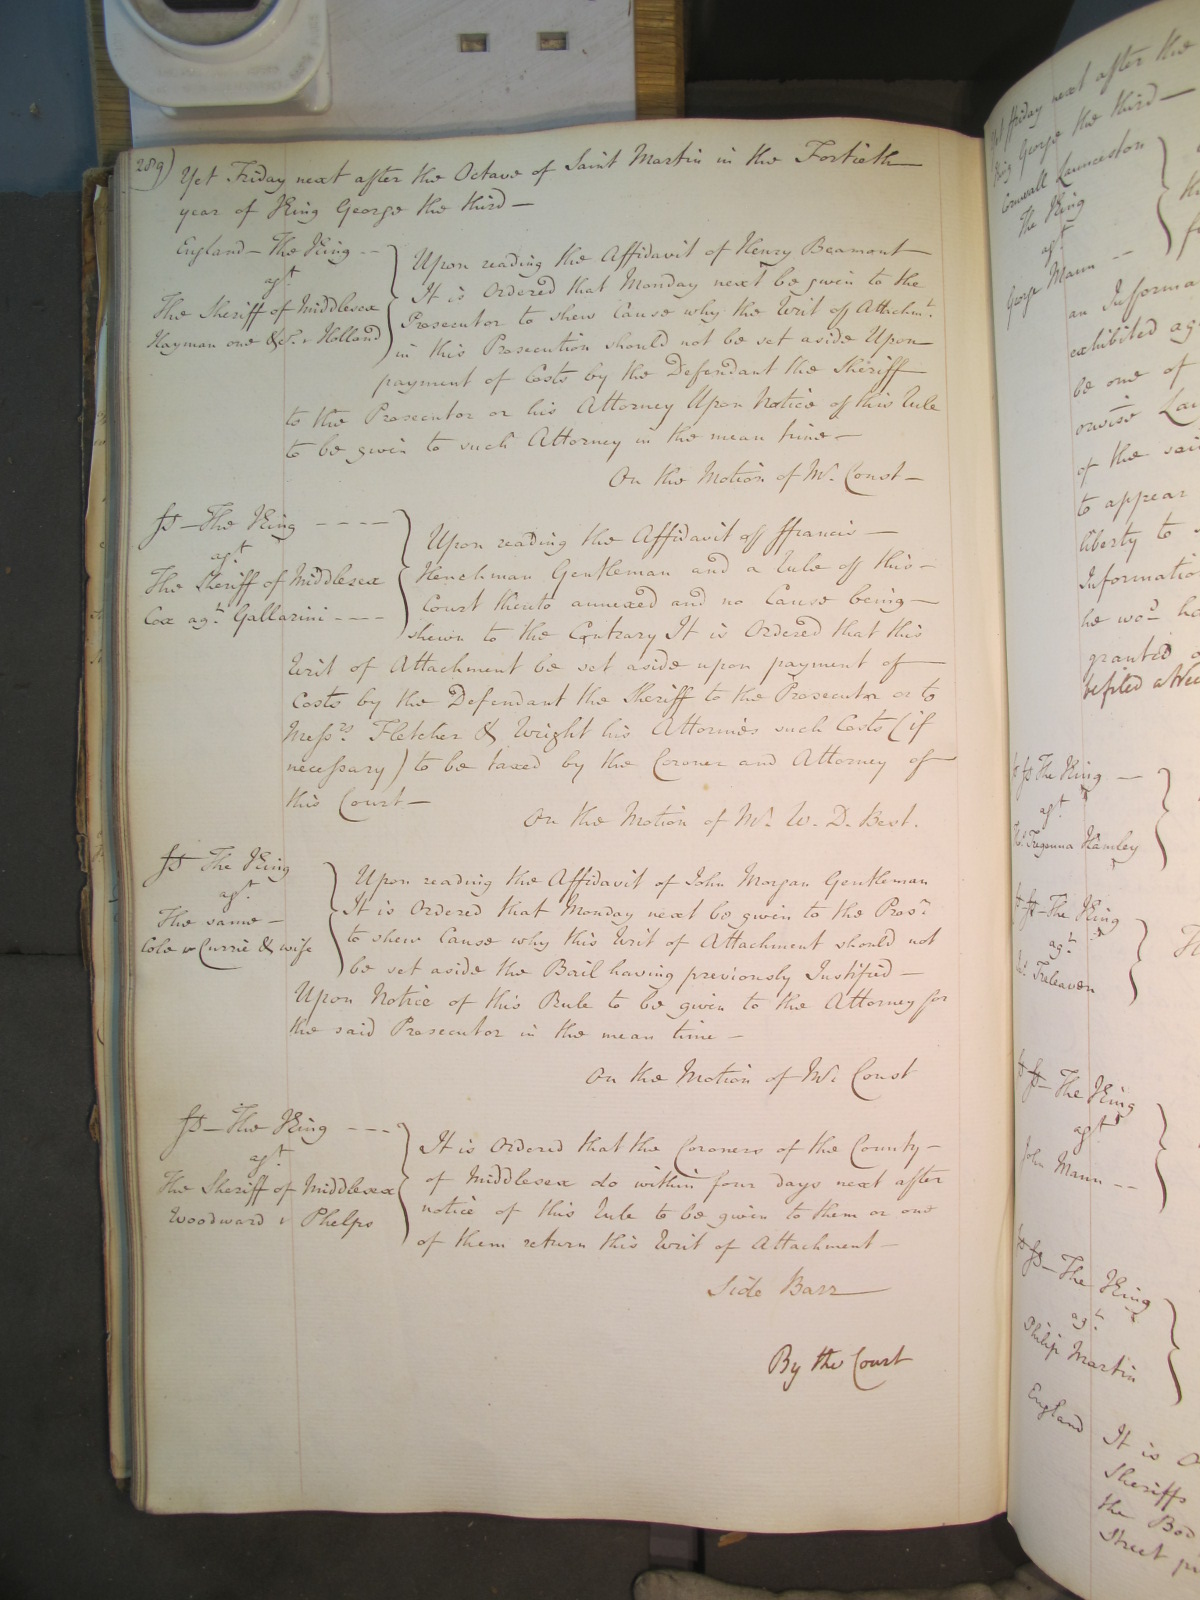 289)
Yet Friday next after the Octave of Saint Martin in the Fortieth
year of King George the third —
England — The King --
agt.
The Sheriff of Middlesex
Hayman one &c. v Holland
Upon reading the Affidavit of Henry Beamont —
It is Ordered that Monday next be given to the
Prosecutor to shew Cause why the Writ of Attachmt.
in this Prosecution should not be set aside Upon
payment of Costs by the Defendant the Sheriff
to the Prosecutor or his Attorney Upon Notice of this Rule
to be given to such Attorney in the mean time —
On the Motion of Mr. Const —
fs — The King ----
agt
The Sheriff of Middlesex
Cox agt. Gallarini ----
Upon reading the Affidavit of ffrancis —
Henchman Gentleman and a Rule of this —
Court thereto annexed and no Cause being —
shewn to the Contrary It is Ordered that this
Writ of Attachment be set aside upon payment of
Costs by the Defendant the Sheriff to the Prosecutor or to
Messrs. Fletcher & Wright his Attornies such Costs (if
necessary) to be taxed by the Coroner and Attorney of
this Court —
On the Motion of Mr. W. D. Best.
fs The King
agt.
The same —
Cole v Currie & wife
Upon reading the Affidavit of John Morgan Gentleman
It is Ordered that Monday next be given to the Prosr.
to shew Cause why this Writ of Attachment should not
be set aside the Bail having previously Justified —
Upon Notice of this Rule to be given to the Attorney for
the said Prosecutor in the mean time —
On the Motion of Mr. Const
fs — The King ---
agt.
The Sheriff of Middlesex
Woodward v Phelps
It is Ordered that the Coroners of the County —
of Middlesex do within four days next after
notice of this Rule to be given to them or one
of them return this Writ of Attachment —
Side Barr
By the Court
Yet ffriday next after the
King George the third —
Cornwall Launceston
The King
agt
George Mann --
an Informa
exhibited ag
be one of
orwise Lau
of the sai
to appear
liberty to
Informatio
he wod. ha
granted
The King —
agt
Tregenna Hamley
The King
agt.
Treleaven
The King
agt
John Mann --
The King
agt.
Philip Martin
England It is O
Sheriffs
the Bod
Street